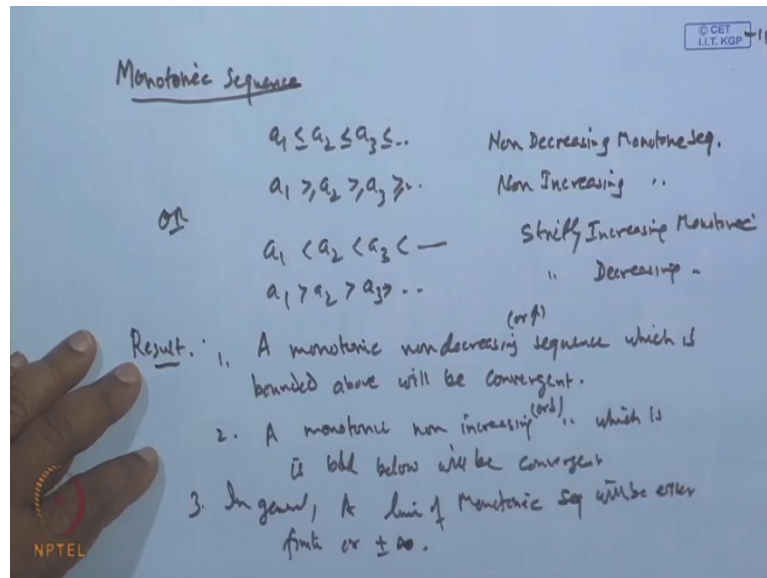 © CET
I.I.T. KGP
Monotonic Sequence
a₁ ≤ a₂ ≤ a₃ ≤ .. Non Decreasing Monotone Seq.
a₁ ≥, a₂ ≥, a₃ ≥ .. Non Increasing ..
OR
a₁ < a₂ < a₃ < — Strictly Increasing Monotonic
a₁ > a₂ > a₃ > .. " Decreasing -
Result. 1. A monotonic nondecreasing (or ↑) sequence which is
bounded above will be convergent.
2. A monotonic non increasing (or ↓) .. which is
is bdd below will be convergent
3. In general, A limit of Monotonic Seq will be either
finite or ± ∞.
NPTEL